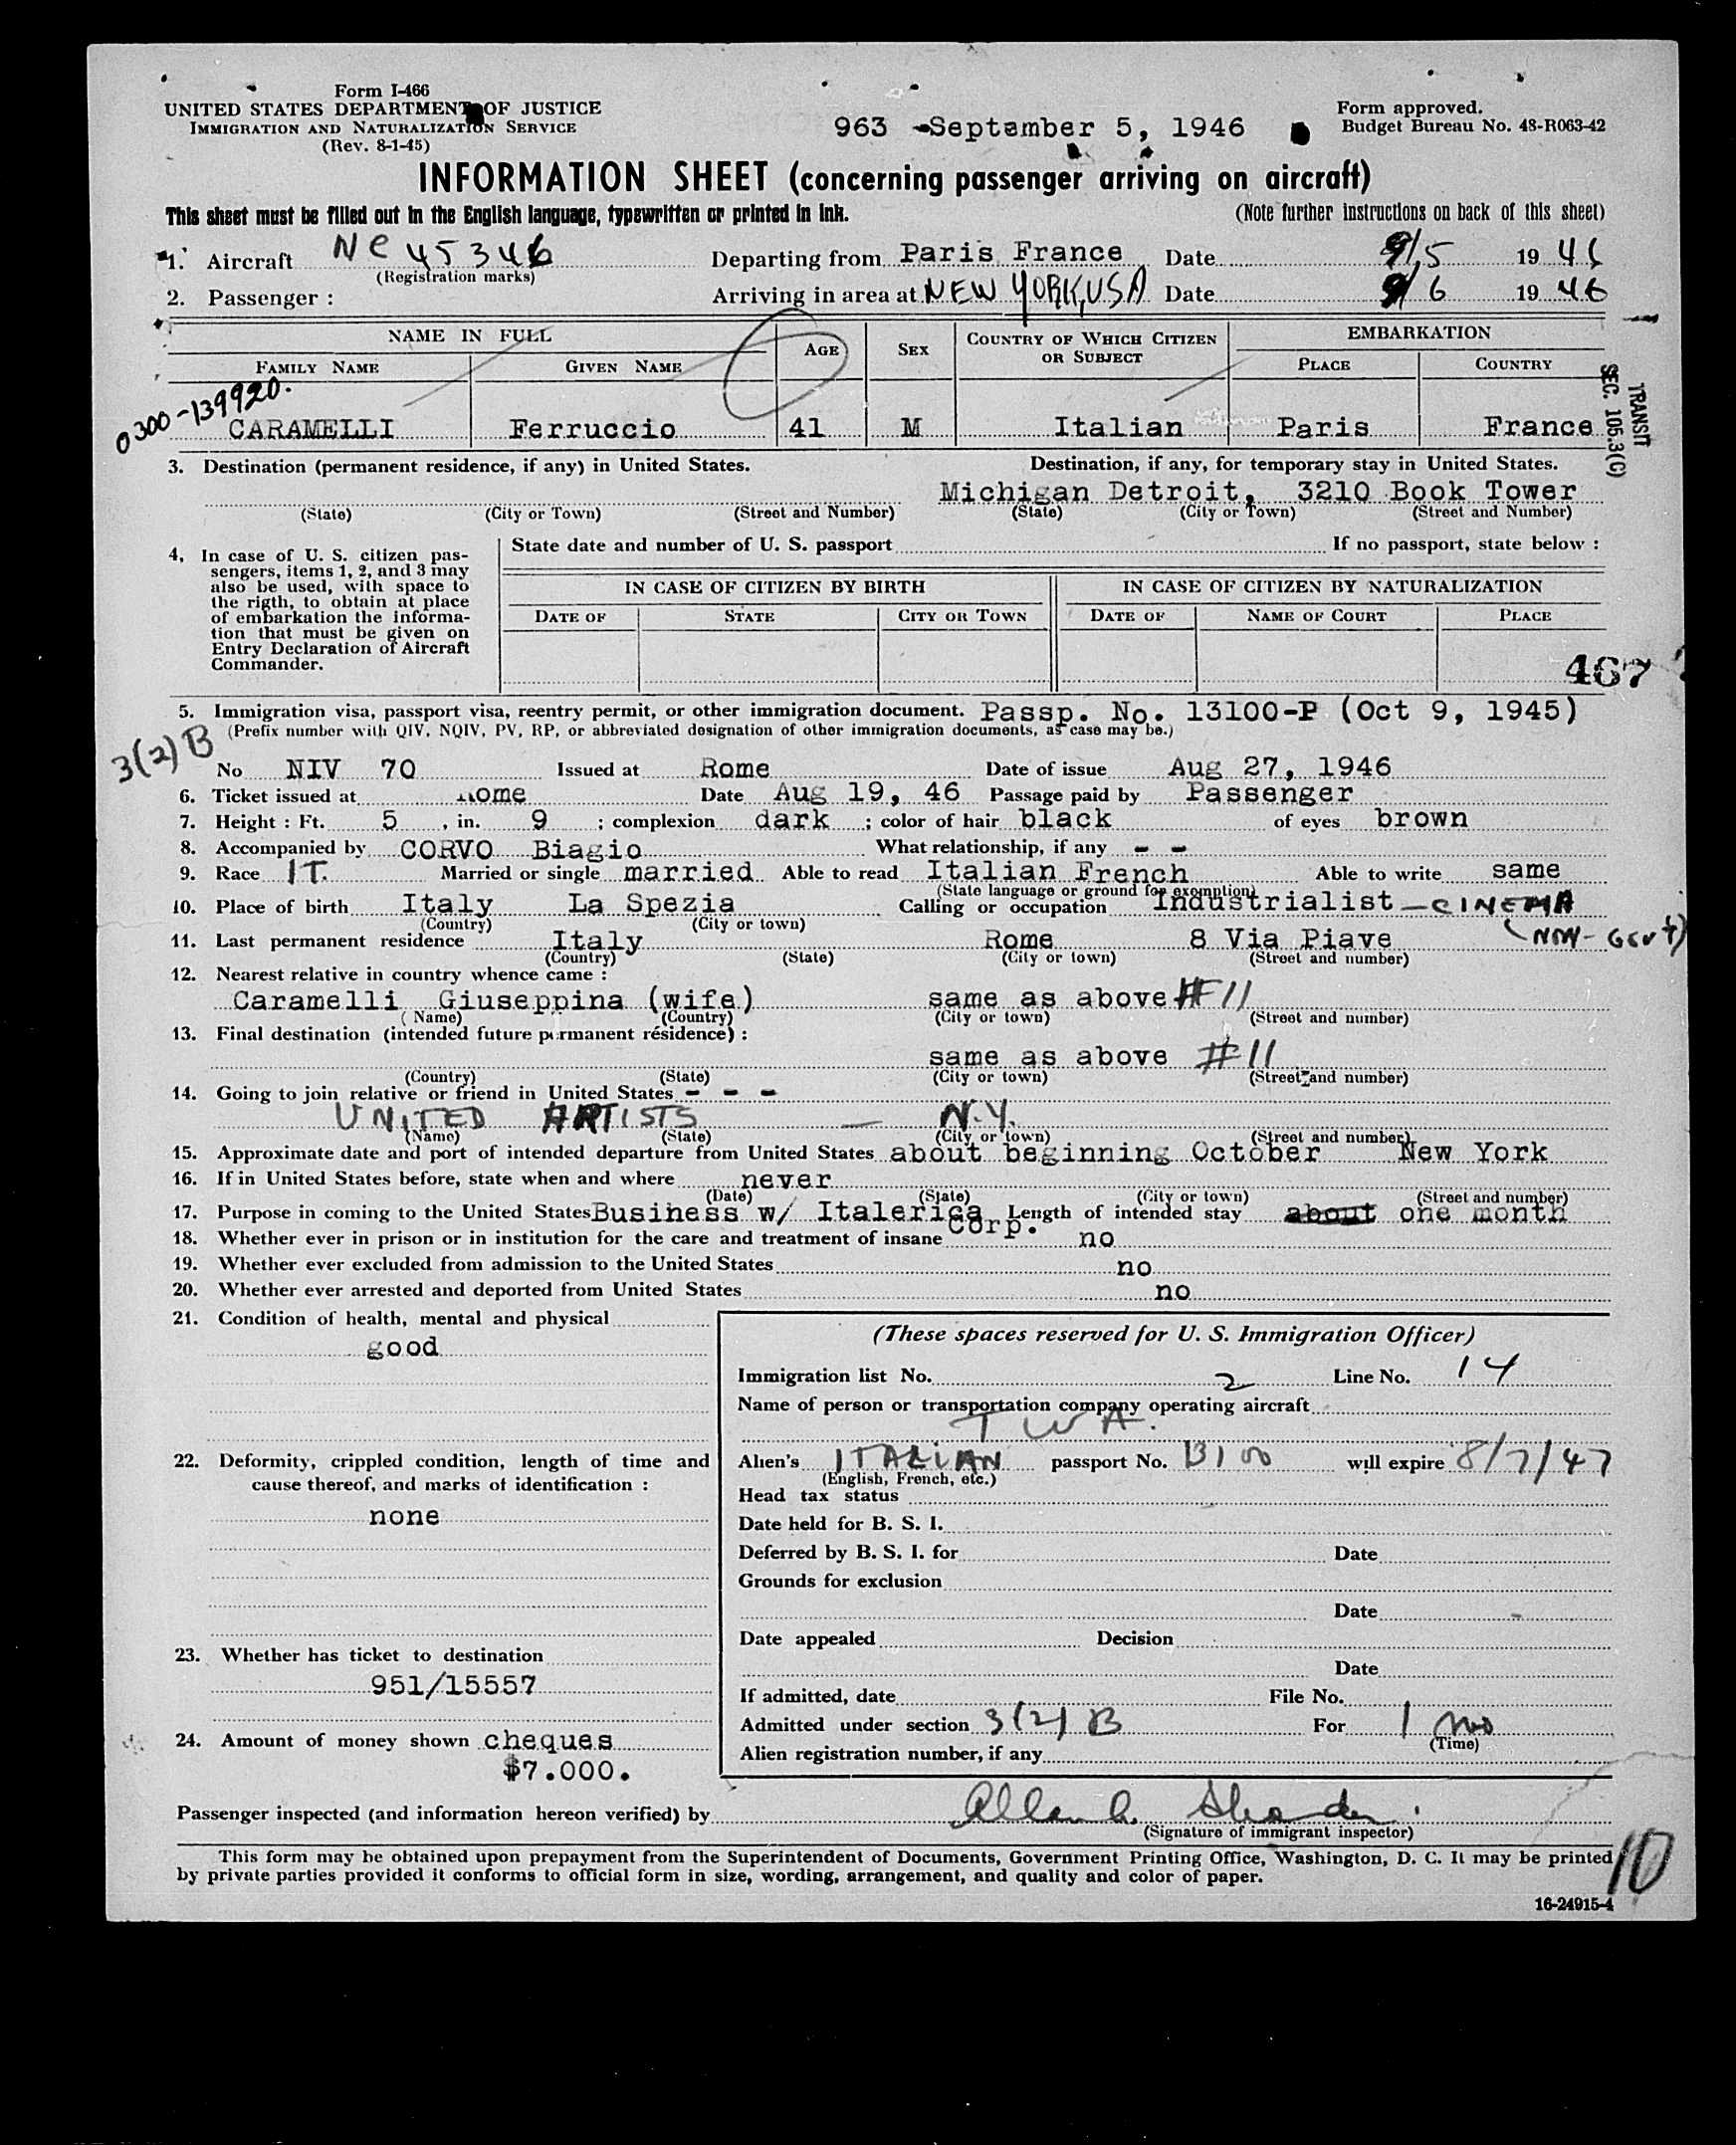 Form I-466
UNITED STATES DEPARTMENT OF JUSTICE
IMMIGRATION AND NATURALIZATION SERVICE
(Rev. 8-1-45)
963 -September 5, 1946
Form approved.
Budget Bureau No. 43-R063-42
INFORMATION SHEET (concerning passenger arriving on aircraft)
This sheet must be filled out in the English language, typewritten or printed in ink. (Note further instructions on back of this sheet)
1. Aircraft NC 45346 Departing from Paris France Date 9/5 1946
(Registration marks)
2. Passenger : Arriving in area at NEW YORK, USA Date 9/6 1946
NAME IN FULL AGE SEX COUNTRY OF WHICH CITIZEN OR SUBJECT EMBARKATION
FAMILY NAME GIVEN NAME PLACE COUNTRY
0300-139920.
CARAMELLI Ferruccio 41 M Italian Paris France
TRANSIT
SEC. 105.3(C)
3. Destination (permanent residence, if any) in United States. Destination, if any, for temporary stay in United States.
Michigan Detroit, 3210 Book Tower
(State) (City or Town) (Street and Number) (State) (City or Town) (Street and Number)
4. In case of U. S. citizen pas-
sengers, items 1, 2, and 3 may
also be used, with space to
the rigth, to obtain at place
of embarkation the informa-
tion that must be given on
Entry Declaration of Aircraft
Commander.
State date and number of U. S. passport If no passport, state below :
IN CASE OF CITIZEN BY BIRTH IN CASE OF CITIZEN BY NATURALIZATION
DATE OF STATE CITY OR TOWN DATE OF NAME OF COURT PLACE
467
5. Immigration visa, passport visa, reentry permit, or other immigration document. Passp. No. 13100-P (Oct 9, 1945)
(Prefix number with QIV, NQIV, PV, RP, or abbreviated designation of other immigration documents, as case may be.)
3(2)B
No NIV 70 Issued at Rome Date of issue Aug 27, 1946
6. Ticket issued at Rome Date Aug 19, 46 Passage paid by Passenger
7. Height : Ft. 5 , in. 9 ; complexion dark ; color of hair black of eyes brown
8. Accompanied by CORVO Biagio What relationship, if any - -
9. Race IT. Married or single married Able to read Italian French Able to write same
(State language or ground for exemption)
10. Place of birth Italy La Spezia Calling or occupation Industrialist - CINEMA
(Country) (City or town) (NON-Govt)
11. Last permanent residence Italy Rome 8 Via Piave
(Country) (State) (City or town) (Street and number)
12. Nearest relative in country whence came :
Caramelli Giuseppina (wife) same as above #11
(Name) (Country) (City or town) (Street and number)
13. Final destination (intended future permanent résidence) :
same as above #11
(Country) (State) (City or town) (Street and number)
14. Going to join relative or friend in United States - - -
UNITED ARTISTS — N.Y.
(Name) (State) (City or town) (Street and number)
15. Approximate date and port of intended departure from United States about beginning October New York
16. If in United States before, state when and where never
(Date) (State) (City or town) (Street and number)
17. Purpose in coming to the United States Business w/ Italerica Corp. Length of intended stay about one month
18. Whether ever in prison or in institution for the care and treatment of insane no
19. Whether ever excluded from admission to the United States no
20. Whether ever arrested and deported from United States no
21. Condition of health, mental and physical
good
22. Deformity, crippled condition, length of time and
cause thereof, and marks of identification :
none
23. Whether has ticket to destination
951/15557
24. Amount of money shown cheques
$7.000.
(These spaces reserved for U. S. Immigration Officer)
Immigration list No. 2 Line No. 14
Name of person or transportation company operating aircraft
TWA.
Alien's ITALIAN passport No. 13100 will expire 8/7/47
(English, French, etc.)
Head tax status
Date held for B. S. I.
Deferred by B. S. I. for Date
Grounds for exclusion
Date
Date appealed Decision
Date
If admitted, date File No.
Admitted under section 3(2) B For 1 mo
(Time)
Alien registration number, if any
Passenger inspected (and information hereon verified) by
(Signature of immigrant inspector)
This form may be obtained upon prepayment from the Superintendent of Documents, Government Printing Office, Washington, D. C. It may be printed
by private parties provided it conforms to official form in size, wording, arrangement, and quality and color of paper.
10
16-24915-4